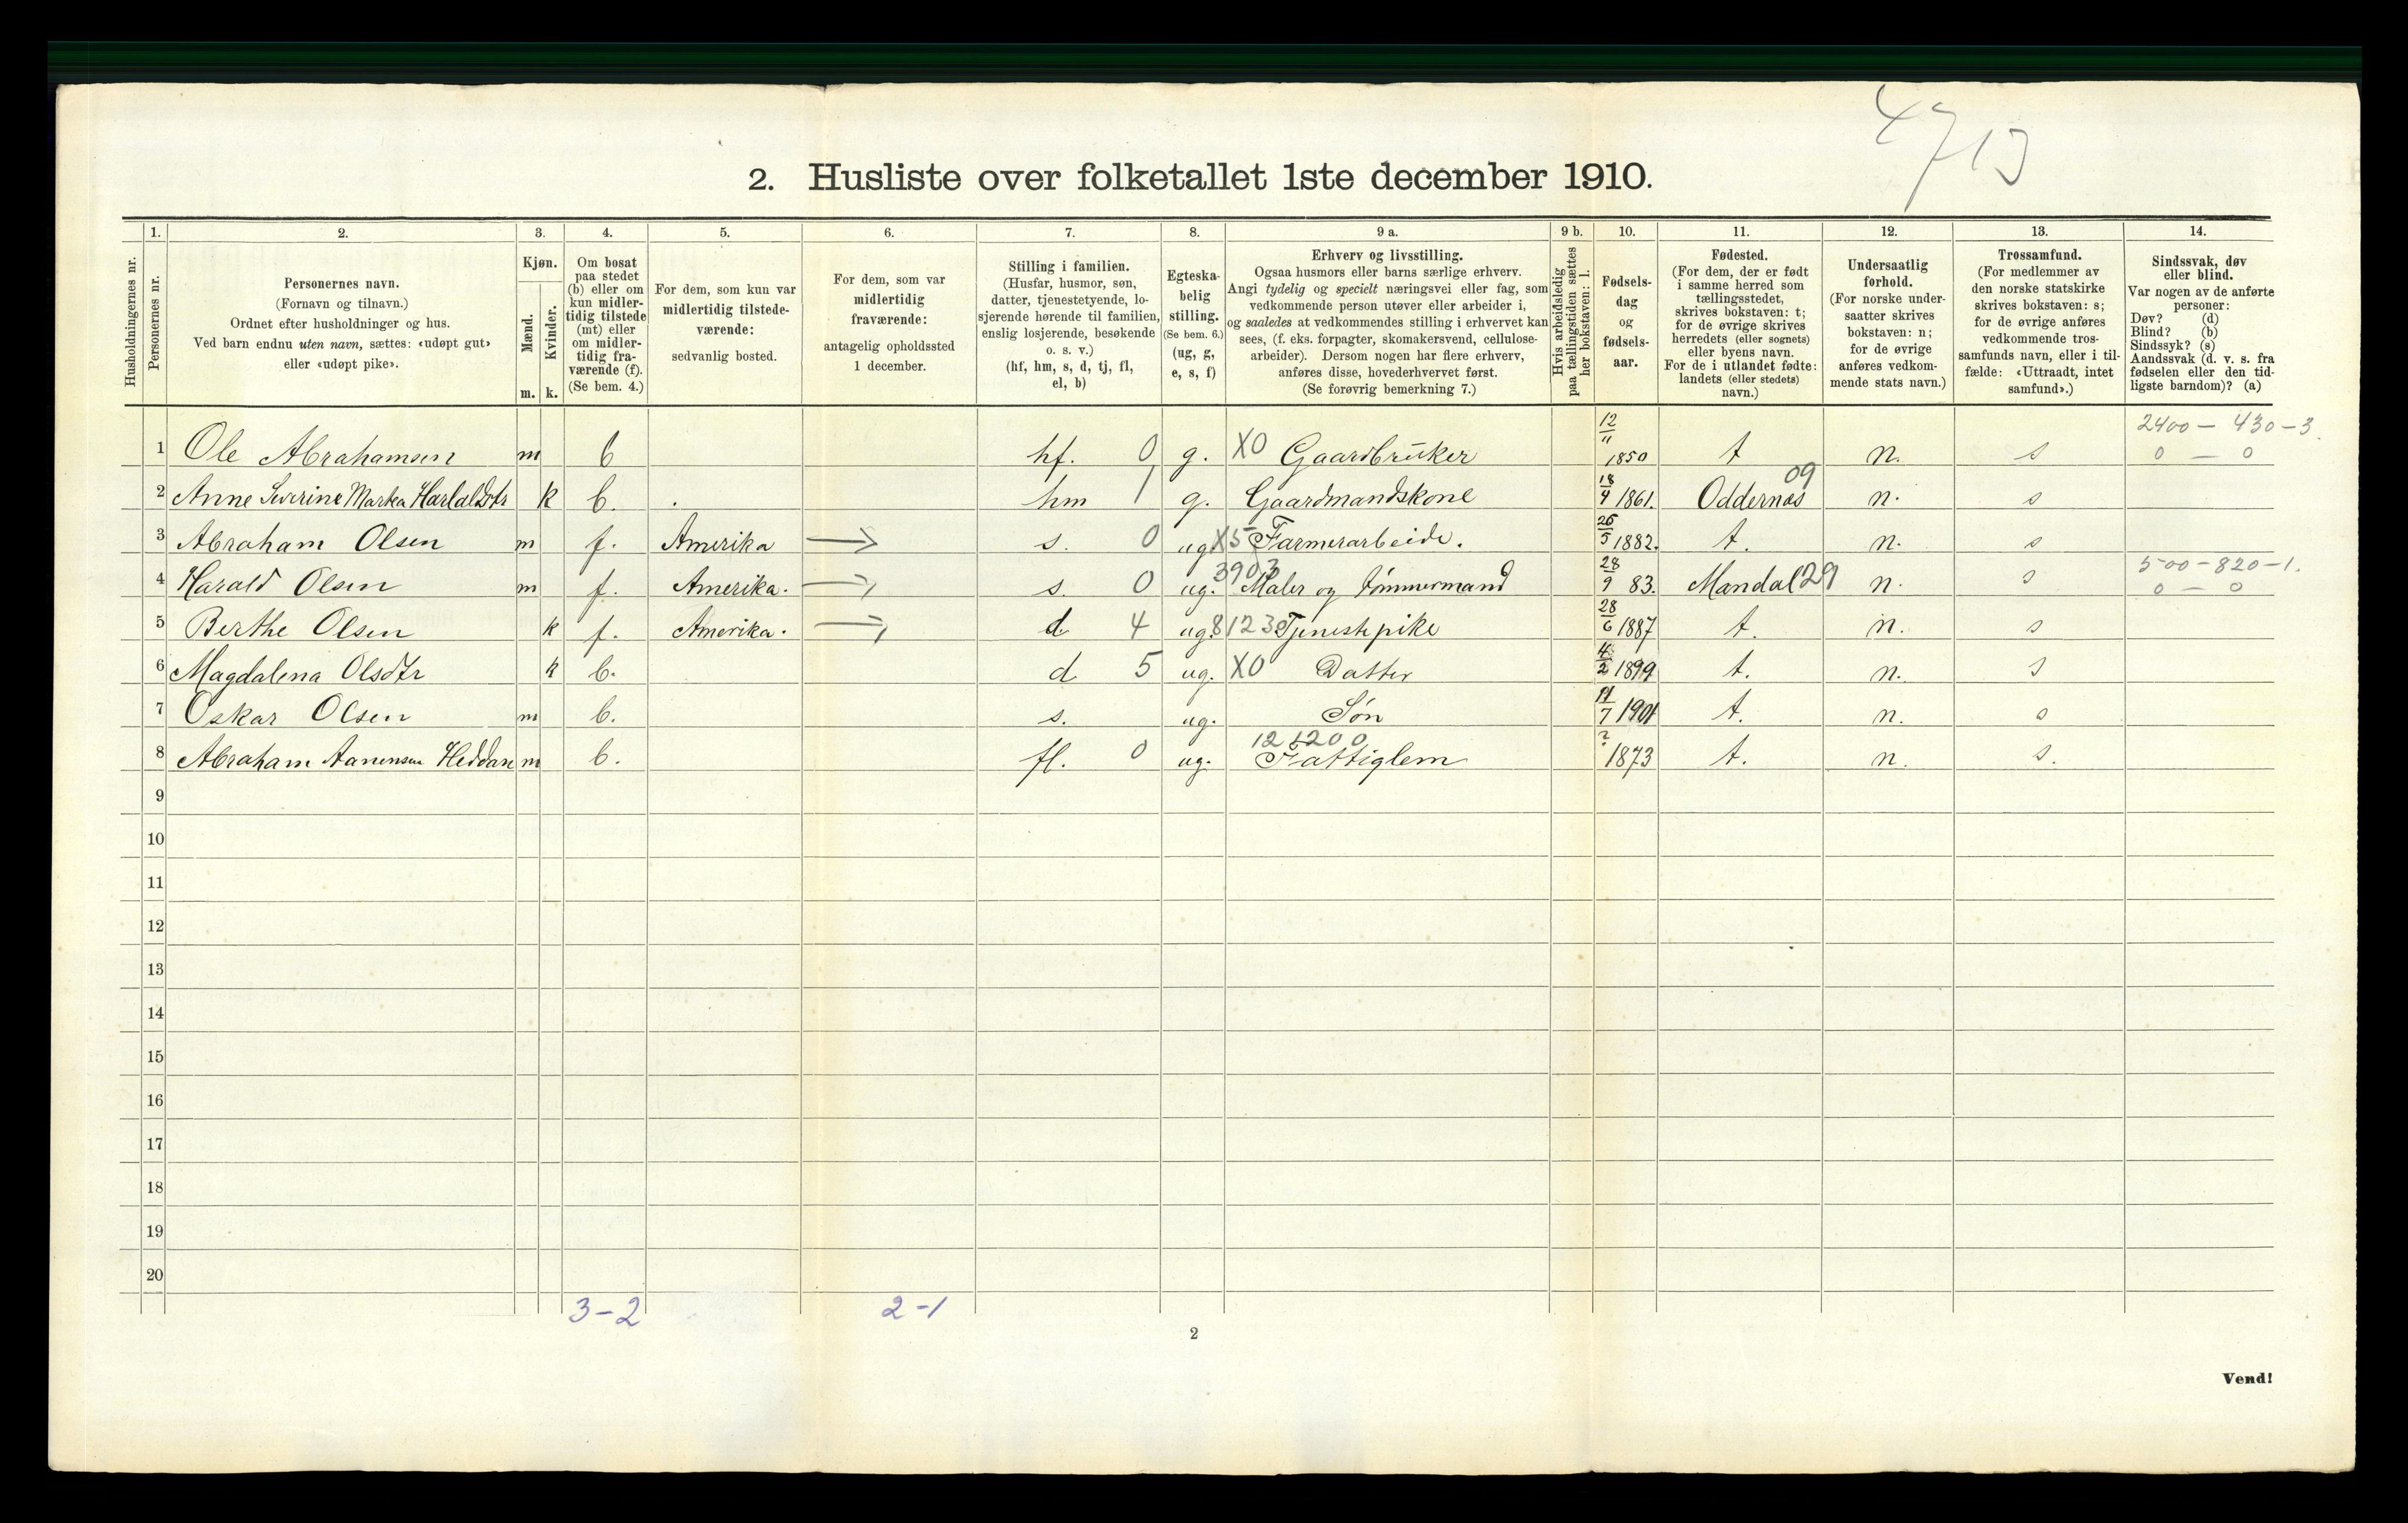 4713
2. Husliste over folketallet 1ste december 1910.
1. 2. 3. 4. 5. 6. 7. 8. 9 a. 9 b. 10. 11. 12. 13. 14.
Husholdningernes nr.
Personernes nr.
Personernes navn.
(Fornavn og tilnavn.)
Ordnet efter husholdninger og hus.
Ved barn endnu uten navn, sættes: «udøpt gut»
eller «udøpt pike».
Kjøn.
Mænd.
Kvinder.
m. k.
Om bosat
paa stedet
(b) eller om
kun midler-
tidig tilstede
(mt) eller
om midler-
tidig fra-
værende (f).
(Se bem. 4.)
For dem, som kun var
midlertidig tilstede-
værende:
sedvanlig bosted.
For dem, som var
midlertidig
fraværende:
antagelig opholdssted
1 december.
Stilling i familien.
(Husfar, husmor, søn,
datter, tjenestetyende, lo-
sjerende hørende til familien,
enslig losjerende, besøkende
o. s. v.)
(hf, hm, s, d, tj, fl,
el, b)
Egteska-
belig
stilling.
(Se bem. 6.)
(ug, g,
e, s, f)
Erhverv og livsstilling.
Ogsaa husmors eller barns særlige erhverv.
Angi tydelig og specielt næringsvei eller fag, som
vedkommende person utøver eller arbeider i,
og saaledes at vedkommendes stilling i erhvervet kan
sees, (f. eks. forpagter, skomakersvend, cellulose-
arbeider). Dersom nogen har flere erhverv,
anføres disse, hovederhvervet først.
(Se forøvrig bemerkning 7.)
Hvis arbeidsledig
paa tællingstiden sættes
her bokstaven: l.
Fødsels-
dag
og
fødsels-
aar.
Fødested.
(For dem, der er født
i samme herred som
tællingsstedet,
skrives bokstaven: t;
for de øvrige skrives
herredets (eller sognets)
eller byens navn.
For de i utlandet fødte:
landets (eller stedets)
navn.)
Undersaatlig
forhold.
(For norske under-
saatter skrives
bokstaven: n;
for de øvrige
anføres vedkom-
mende stats navn.)
Trossamfund.
(For medlemmer av
den norske statskirke
skrives bokstaven: s;
for de øvrige anføres
vedkommende tros-
samfunds navn, eller i til-
fælde: «Uttraadt, intet
samfund».)
Sindssvak, døv
eller blind.
Var nogen av de anførte
personer:
Døv? (d)
Blind? (b)
Sindssyk? (s)
Aandssvak (d. v. s. fra
fødselen eller den tid-
ligste barndom)? (a)
2400 - 430 - 3.
1 Ole Abrahamsen m b hf. 0 g. X0 Gaardbruker 12/11 1850 t n. s 0 - 0
2 Anne Severine Martea Harlaldsdtr k b. hm 1 g. Gaardmandskone 18/4 1861. Oddernæs 09 n. s
3 Abraham Olsen m f. Amerika → s. 0 ug X5 Farmerarbeide. 25/5 1882. t. n. s
500 - 820 - 1.
4 Harald Olsen m f. Amerika. → s. 0 ug. 3903 Maler og tømmermand 28/9 83. Mandal 29 n. s 0 - 0
5 Berthe Olsen k f. Amerika. → d 4 ug. 8123 Tjenestepike 28/6 1887 t. n. s
6 Magdalena Olsdtr k b. d 5 ug. X0 Datter 4/2 1899 t. n. s
7 Oskar Olsen m b. s. ug. Søn 11/7 1901 t. n. s
121200
8 Abraham Aanensen Heddan m b. fl. 0 ug. Fattiglem ? 1873 t. n. s.
9
10
11
12
13
14
15
16
17
18
19
20
3-2 2-1
2
Vend!